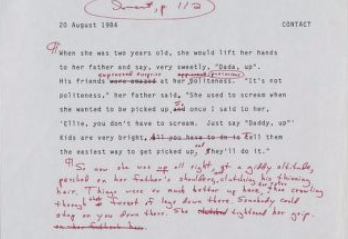 Insert, p 112
20 August 1984 CONTACT
¶When she was two years old, she would lift her hands
to her father and say, very sweetly, "Dada, up".
expressed surprise apparent precocious
His friends were amazed at her politeness. "It's not
politeness," her father said. "She used to scream when
she wanted to be picked up. So and once I said to her,
'Ellie, you don't have to scream. Just say "Daddy, up"'
Kids are very bright. All you have to do is tell them
the easiest way to get picked up, and they'll do it."
¶So now she was up all right, at a giddy altitude,
perched on her father's shoulders, clutching his thinning
hair. Things were so much better up here, than crawling
through a forest of legs down there. Somebody could
step on you down there. She tightened her grip.
on her father's hair.